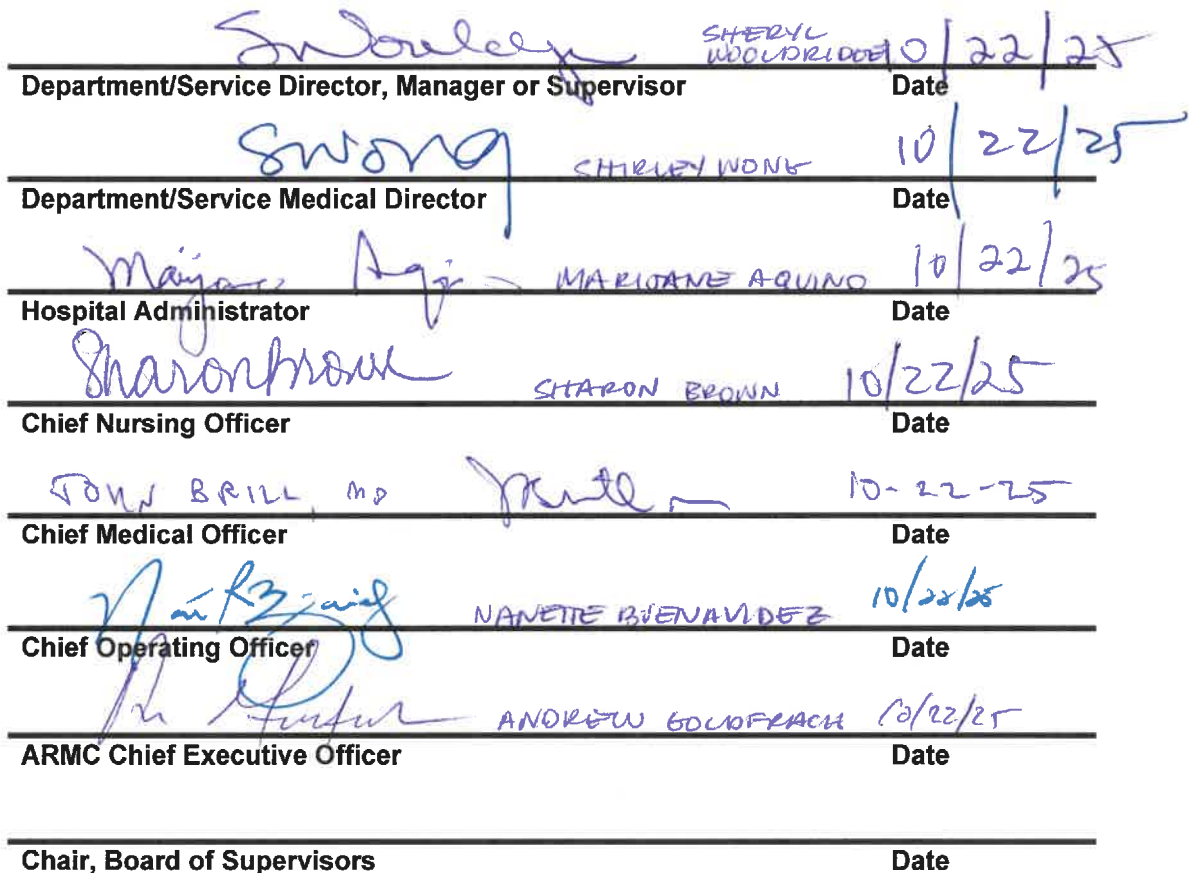 SWooldridge SHERYL WOOLDRIDGE 10/22/25
Department/Service Director, Manager or Supervisor Date
SWong SHIRLEY WONG 10/22/25
Department/Service Medical Director Date
MARIJANE AQUINO 10/22/25
Hospital Administrator Date
Sharon Brown SHARON BROWN 10/22/25
Chief Nursing Officer Date
JOHN BRILL, MD 10-22-25
Chief Medical Officer Date
NANETTE BUENAVIDEZ 10/22/25
Chief Operating Officer Date
ANDREW GOLDFRACH 10/22/25
ARMC Chief Executive Officer Date
Chair, Board of Supervisors Date